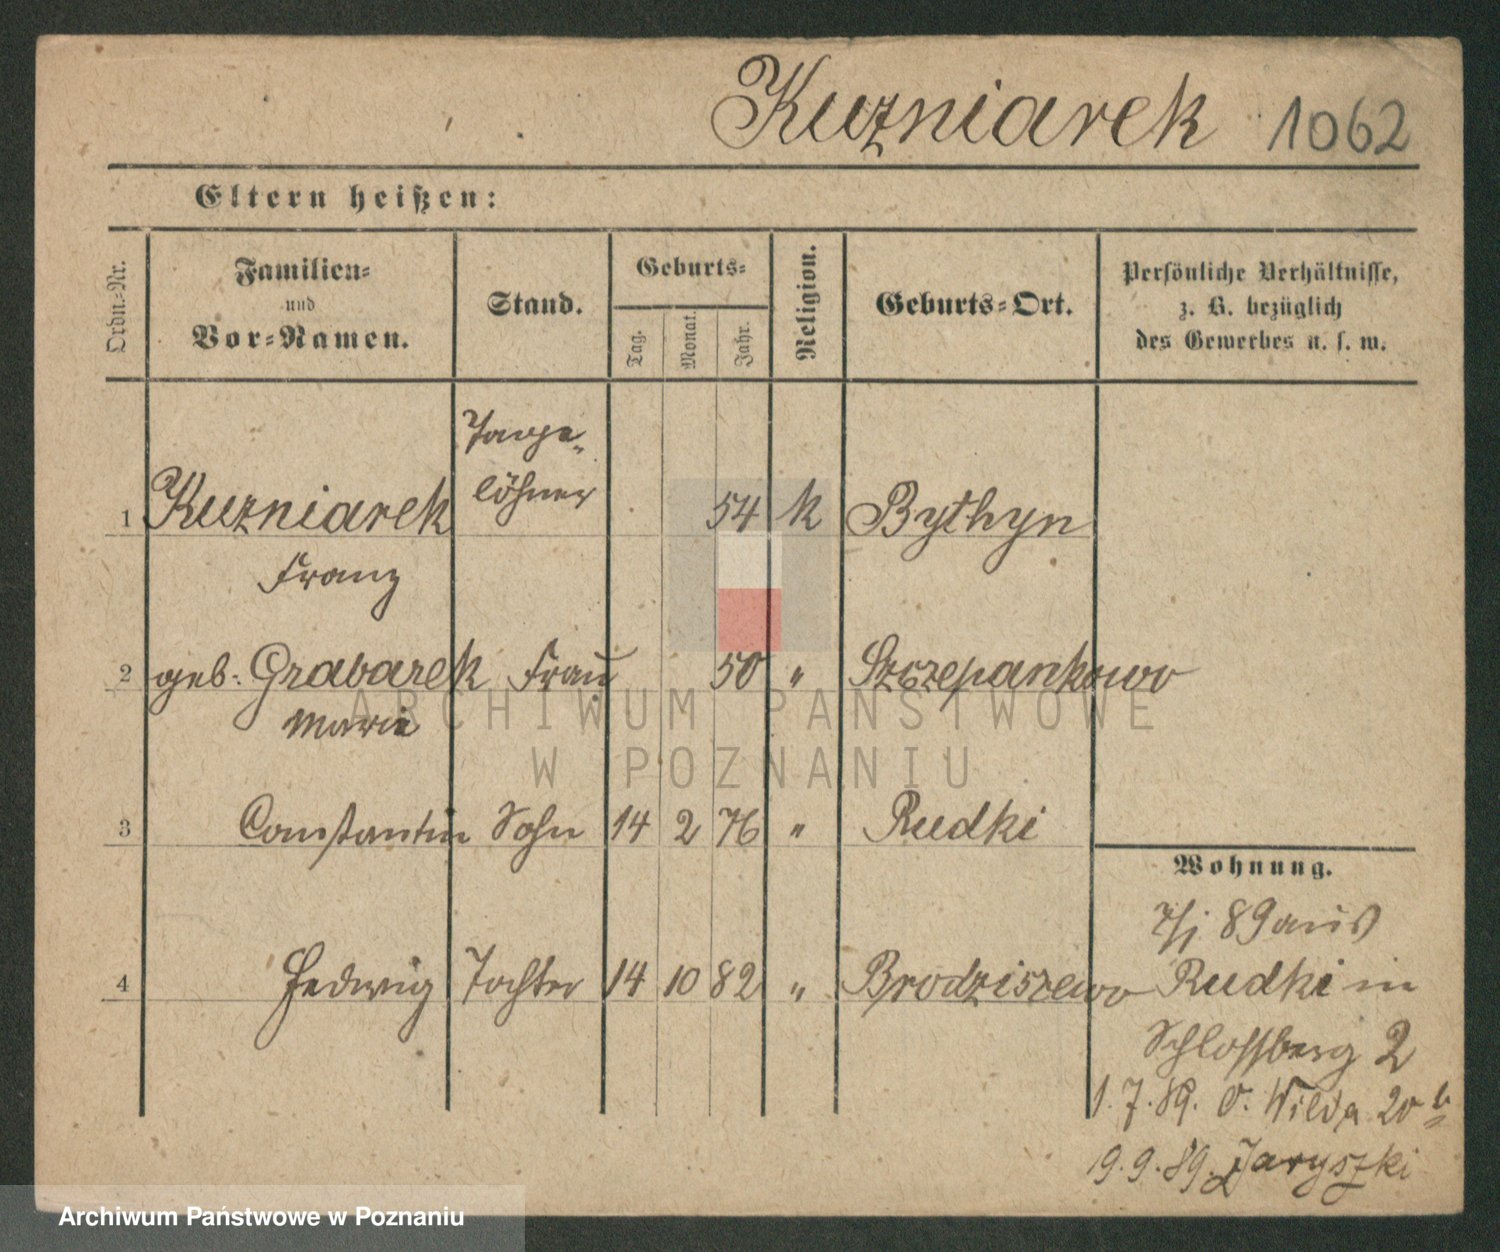 Kuzniarek 1062
Eltern heißen:
Ordn.-Nr.
Familien-
und
Vor-Namen.
Stand.
Geburts-
Tag.
Monat.
Jahr.
Religion.
Geburts-Ort.
Persönliche Verhältnisse,
z. B. bezüglich
des Gewerbes u. s. w.
Tage-
löhner
1 Kuzniarek 54 k Bythyn
Franz
2 geb. Grabarek Frau 50 " Szczepankowo
Marie
3 Constantin Sohn 14 2 76 " Rudki
4 Hedwig Tochter 14 10 82 " Brodziszewo
Wohnung.
89 aus
Rudki in
Schlossberg 2
1.7.89. O. Wilda 20 b
19.9.89. Jaryszki
ARCHIWUM PAŃSTWOWE
W POZNANIU
Archiwum Państwowe w Poznaniu